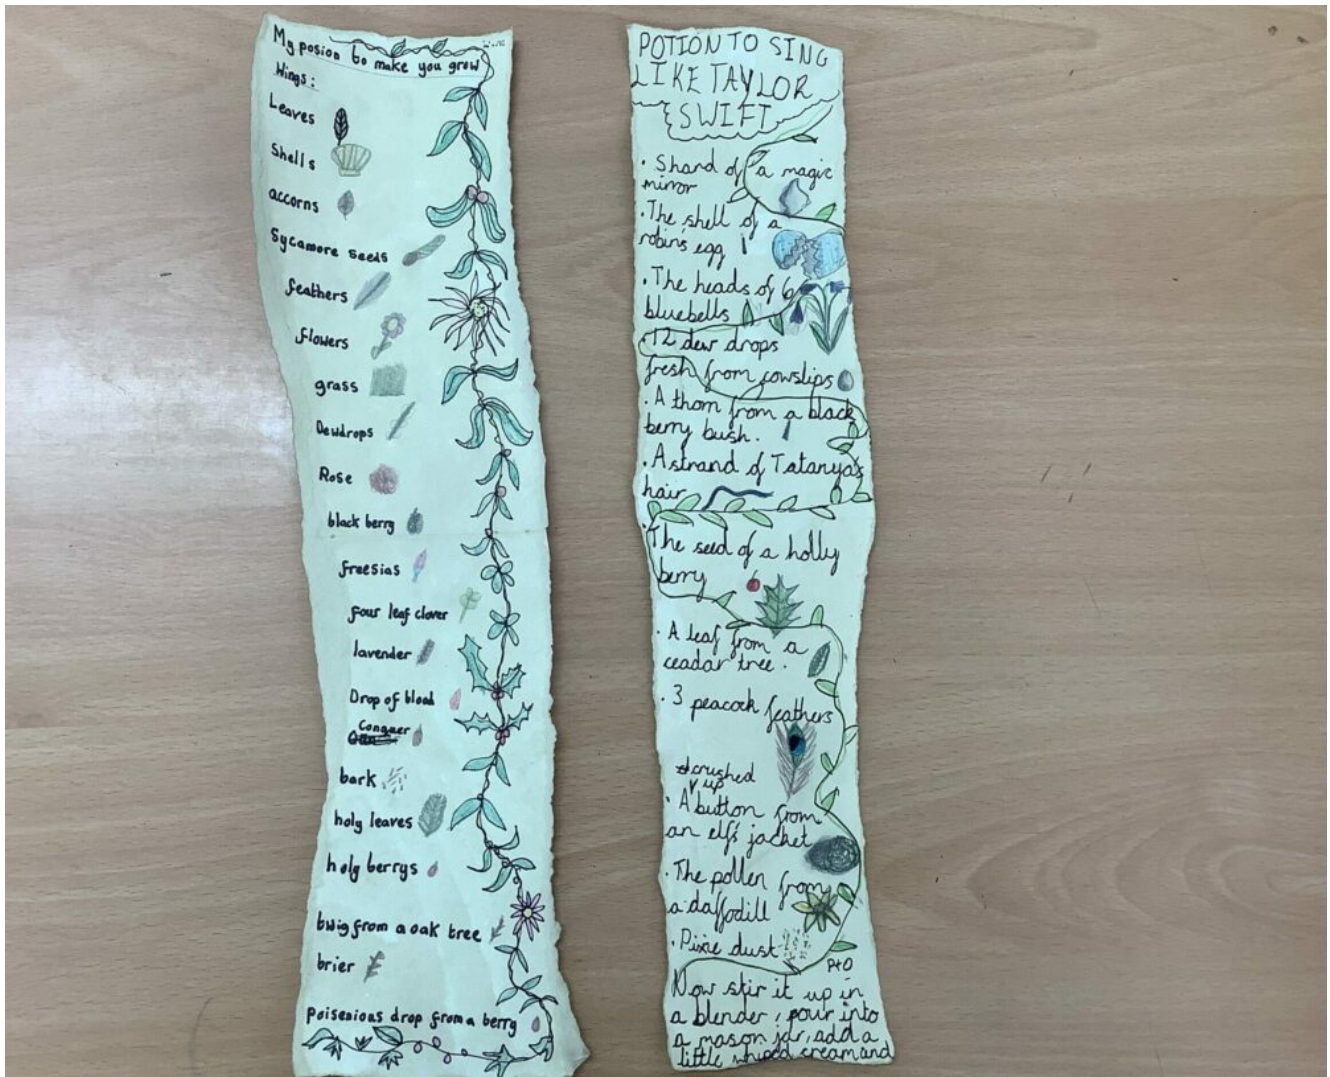 My posion to make you grow
Wings:
Leaves
Shells
accorns
Sycamore seeds
feathers
flowers
grass
Dewdrops
Rose
black berry
freesias
four leaf clover
lavender
Drop of blood
Conquer
bark
holy leaves
holy berrys
twig from a oak tree
brier
poisenious drop from a berry
POTION TO SING
LIKE TAYLOR
SWIFT
. Shard of a magic
mirror
.The shell of a
robins egg
.The heads of 6
bluebells
.12 dew drops
fresh from cowslips
.A thorn from a black
berry bush.
.A strand of Tatanya's
hair
The seed of a holly
berry
. A leaf from a
ceadar tree.
. 3 peacock feathers
crushed
up
. A button from
an elf's jacket
.The pollen from
a daffodill
.Pixie dust
PtO
Now stir it up in
a blender, pour into
a mason jar, add a
little whipped cream and